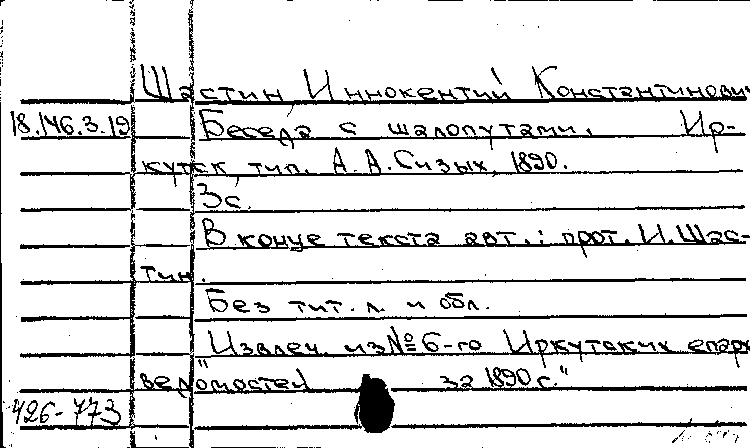 Шастин, Иннокентий Константинович
18.146.3.19 Беседа с шалопутами. Ир-
кутск, тип. А.А.Сизых, 1890.
3с.
В конце текста авт.: прот. И.Шас-
тин.
Без тит.л. и обл.
"Извлеч. из №6-го Иркутских епарх
ведомостей за 1890 г."
426-773